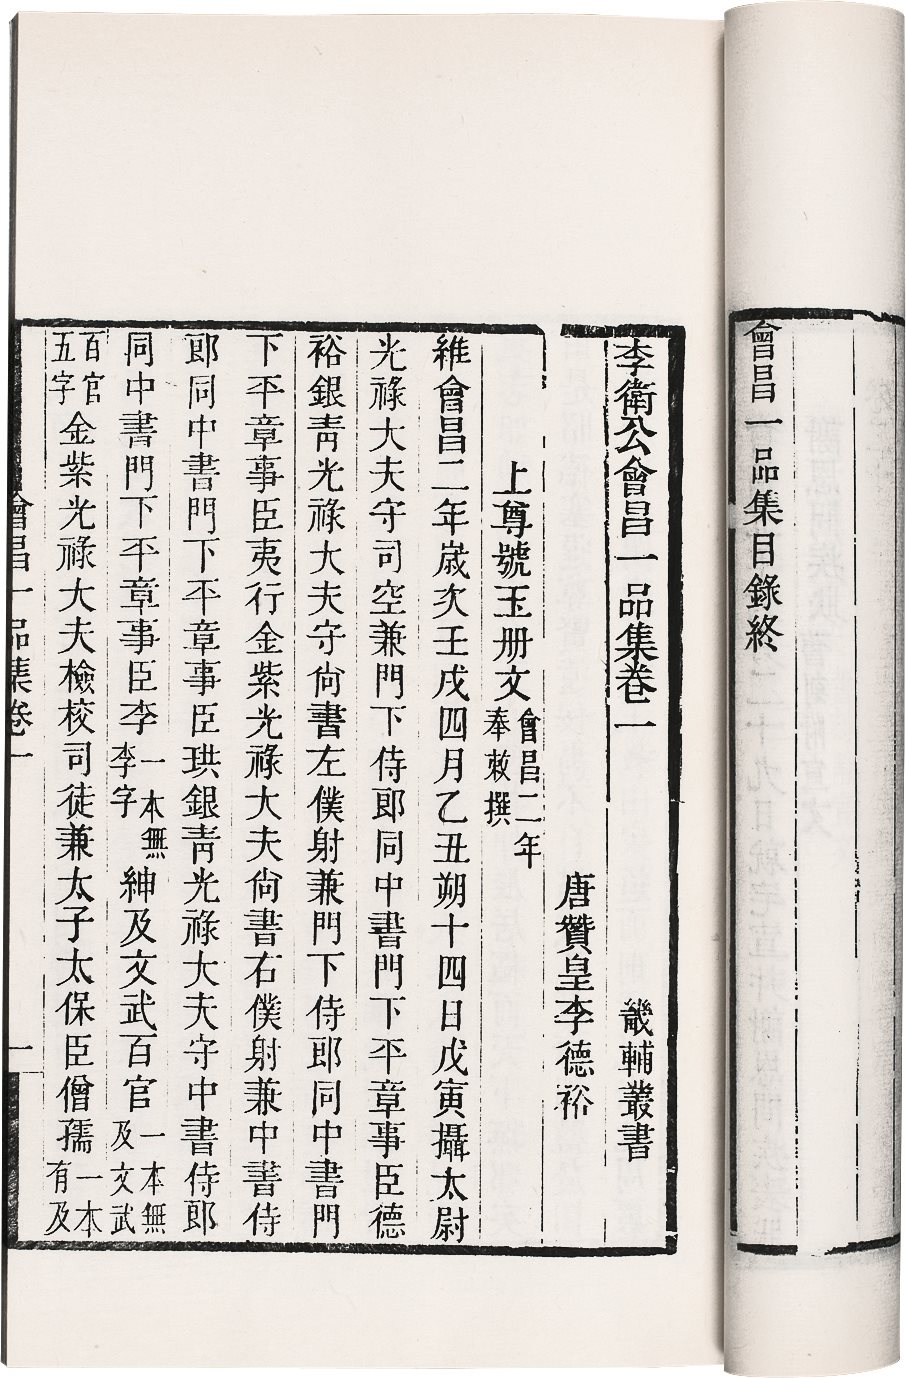 會昌一品集目錄終
李衛公會昌一品集卷一
畿輔叢書
唐贊皇李德裕
上尊號玉册文會昌二年奉敕撰
維會昌二年歲次壬戌四月乙丑朔十四日戊寅攝太尉
光祿大夫守司空兼門下侍郎同中書門下平章事臣德
裕銀靑光祿大夫守尙書左僕射兼門下侍郎同中書門
下平章事臣夷行金紫光祿大夫尙書右僕射兼中書侍
郎同中書門下平章事臣珙銀靑光祿大夫守中書侍郎
同中書門下平章事臣李一本無李字紳及文武百官一本無及文武
百官五字金紫光祿大夫檢校司徒兼太子太保臣僧孺一本有及
會昌一品集卷一
一